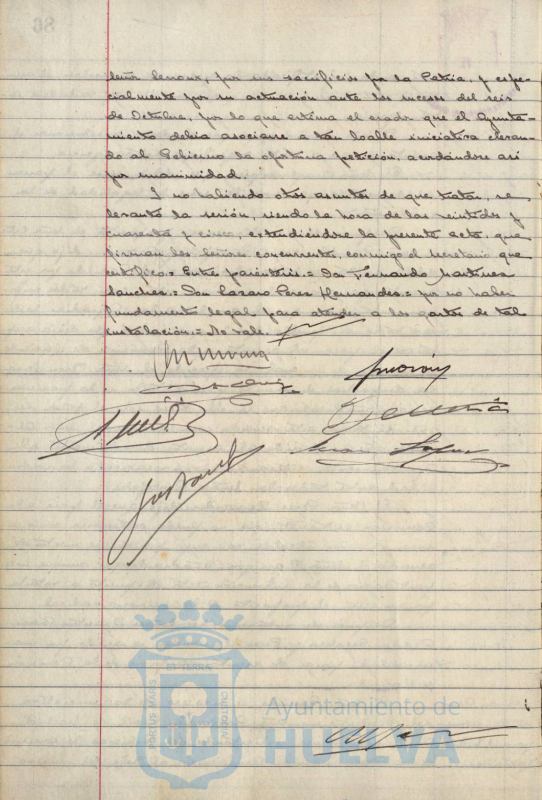 señor Lerroux, por sus sacrificios por la Patria, y espe-
cialmente por su actuación ante los sucesos del seis
de Octubre, por lo que estima el orador que el Ayunta-
miento debia asociarse a tan loable iniciativa elevan-
do al Gobierno la oportuna petición, acordándose asi
por unanimidad.
Y no habiendo otros asuntos de que tratar, se
levantó la sesión, siendo la hora de las veintidos y
cuarenta y cinco, extendiendose la presente acta, que
firman los señores concurrentes, conmigo el secretario que
certifico.= Entre parentesis.= Don Fernando Martinez
Sanchez.= Don Lazaro Perez Hernandez.= por no haber
fundamento legal para atender a los gastos de tal
instalación.= No vale.
PORTUS MARIS
ET TERRÆ
CUSTODIA
Ayuntamiento de
HUELVA
86